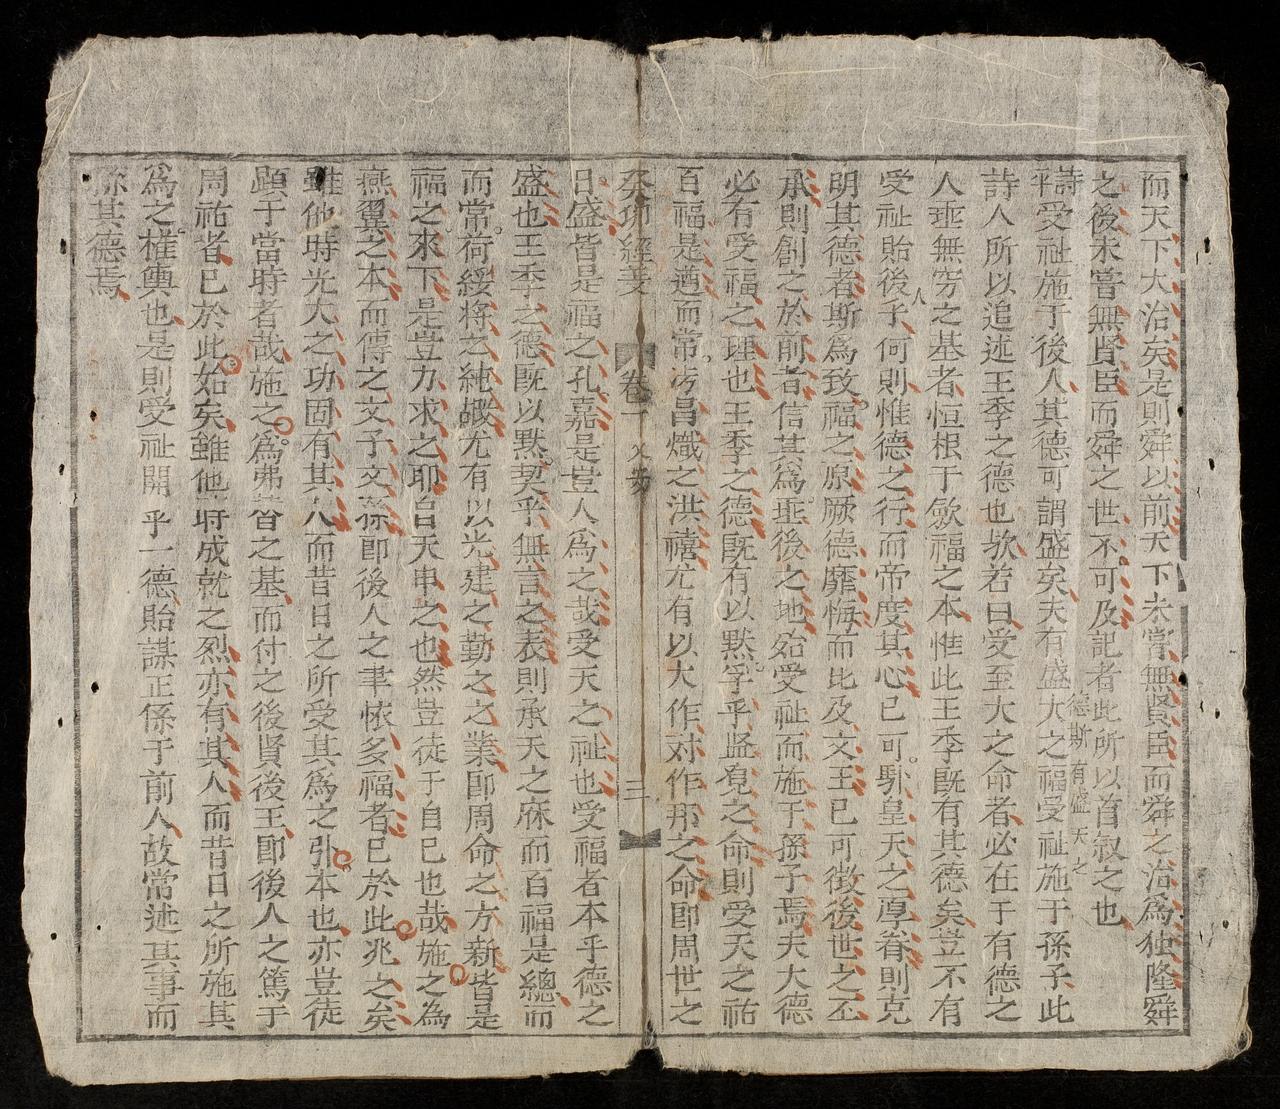 而天下大治矣是則舜以前天下未嘗無賢臣而舜之治為独隆舜
之後未嘗無賢臣而舜之世不可及記者此所以首叙之也
詩受祉施于後人其德可謂盛矣夫有盛大之福受祉施于孫子此
德斯有盛天之
詩人所以追述王季之德也欤若曰受至大之命者必在于有德之
人垂無窮之基者恒根于歛福之本惟此王季既有其德矣豈不有
受祉貽後乎何則惟德之行而帝度其心已可馱皇天之厚眷則克
人
明其德者斯為致福之原厥德靡悔而比及文王已可徴後世之丕
承則創之於前者信其為垂後之地始受祉而施于孫子焉夫大德
必有受福之理也王季之德既有以黙孚乎監覔之命則受天之祐
百福是遒而常汚昌熾之洪禧尤有以大作対作那之命即周世之
癸卯經義 卷一 三
日盛皆是福之孔嘉是豈人為之哉受天之祉也受福者本乎德之
盛也王季之德既以黙契乎無言之表則承天之庥而百福是總而
而常荷綏将之純嘏尤有以光建之勤之之業即周命之方新皆是
福之來下是豈力求之耶自天申之也然豈徒于自已也哉施之為
燕翼之本而傳之文子文孫即後人之聿懐多福者已於此兆之矣
雖他時光大之功固有其人而昔日之所受其為之引本也亦豈徒
顕于當時者哉施之為弗替之基而付之後賢後王即後人之篤于
周祐者已於此始矣雖他時成就之烈亦有其人而昔日之所施其
為之權輿也是則受祉開乎一德貽謀正係于前人故常述其事而
係其德焉